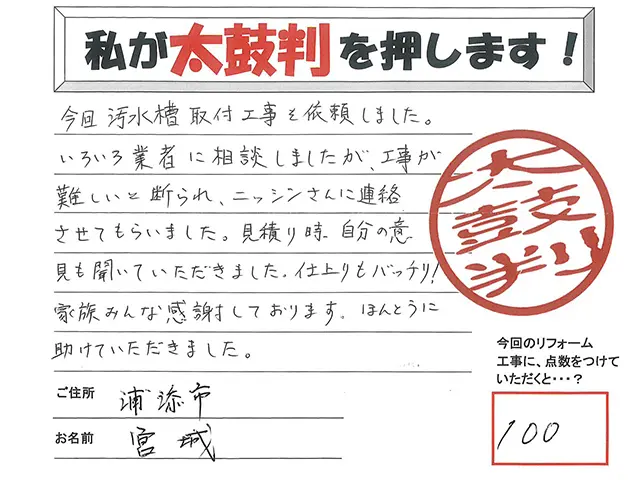 私が太鼓判を押します！
今回汚水槽取付工事を依頼しました。
いろいろ業者に相談しましたが、工事が
難しいと断られ、ニッシンさんに連絡
させてもらいました。見積り時、自分の意
見も聞いていただきました。仕上りもバッチリ!
家族みんな感謝しております。ほんとうに
助けていただきました。
太鼓判
ご住所 浦添市
お名前 宮城
今回のリフォーム
工事に、点数をつけて
いただくと・・・？
100